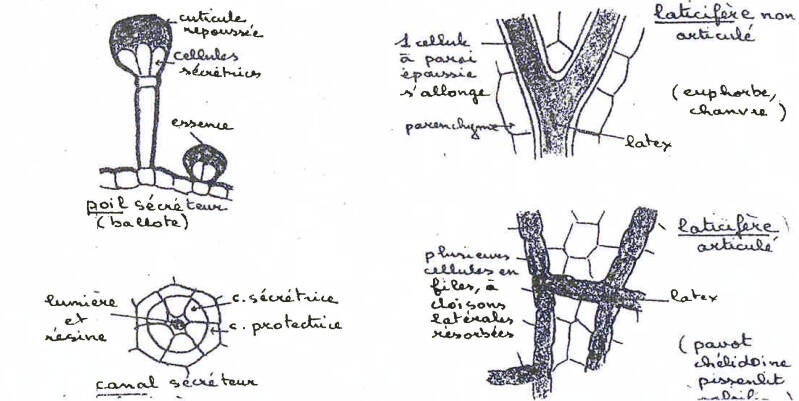 cuticule
repoussée
cellules
sécrétrices
essence
poil sécréteur
(ballote)
lumière
et
résine
c. sécrétrice
c. protectrice
canal sécréteur
laticifère non
articulé
1 cellule
à paroi
épaissie
s'allonge
(euphorbe,
chanvre)
parenchyme
latex
laticifère
articulé
plusieurs
cellules en
files, à
cloisons
latérales
résorbées
latex
(pavot
chélidoine
pissenlit